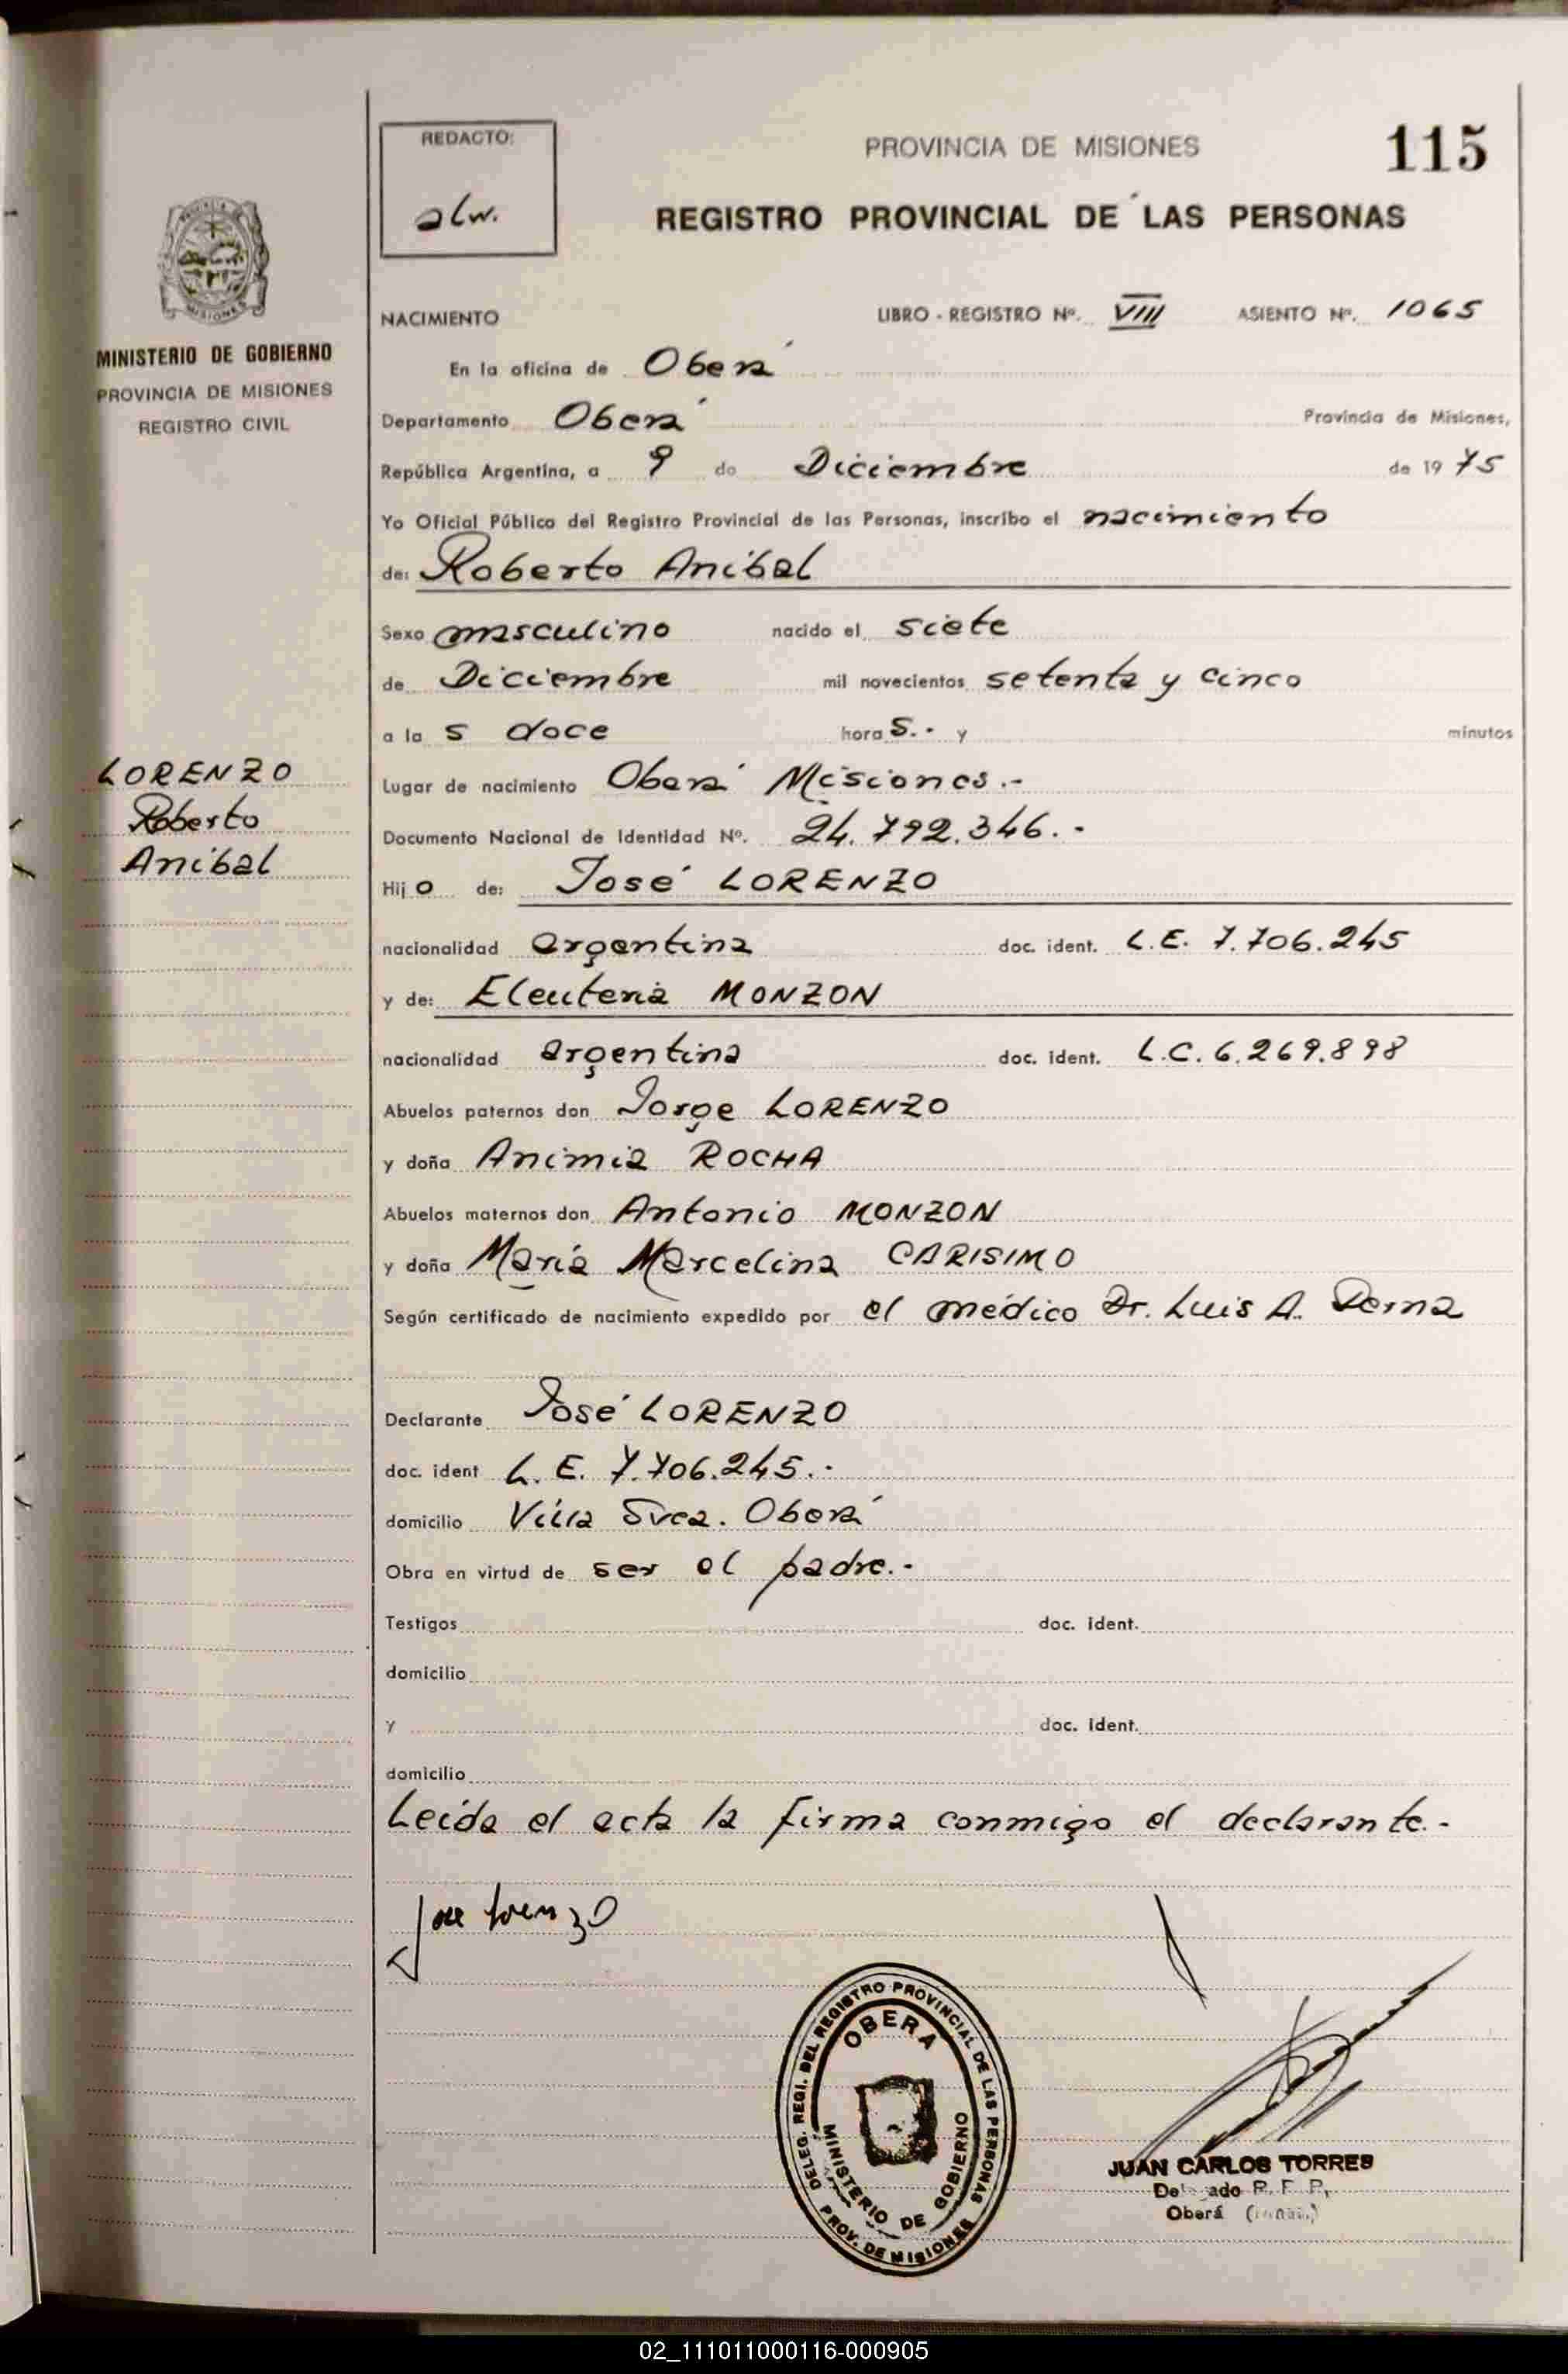 115
REDACTO:
alw.
PROVINCIA DE MISIONES
REGISTRO PROVINCIAL DE LAS PERSONAS
MISIONES
MINISTERIO DE GOBIERNO
PROVINCIA DE MISIONES
REGISTRO CIVIL
NACIMIENTO LIBRO - REGISTRO Nº. VIII ASIENTO Nº. 1065
En la oficina de Oberá
Departamento Oberá Provincia de Misiones,
República Argentina, a 9 de Diciembre de 1975
Yo Oficial Público del Registro Provincial de las Personas, inscribo el nacimiento
de: Roberto Anibal
Sexo masculino nacido el siete
de Diciembre mil novecientos setenta y cinco
a la s doce hora s.- y minutos
LORENZO
Roberto
Anibal
Lugar de nacimiento Oberá Misiones.-
Documento Nacional de Identidad Nº. 24.792.346.-
Hijo de: José LORENZO
nacionalidad argentina doc. ident. L.E. 7.706.245
y de: Eleuteria MONZON
nacionalidad argentina doc. ident. L.C. 6.269.898
Abuelos paternos don Jorge LORENZO
y doña Animia ROCHA
Abuelos maternos don Antonio MONZON
y doña María Marcelina CARISIMO
Según certificado de nacimiento expedido por el médico Dr. Luis A. Derna
Declarante José LORENZO
doc. ident L.E. 7.706.245.-
domicilio Villa Svea. Oberá
Obra en virtud de ser el padre.-
Testigos doc. ident.
domicilio
y doc. ident.
domicilio
Leída el acta la firma conmigo el declarante.-
Jose Lorenzo
DELEG. REGI. DEL REGISTRO PROVINCIAL DE LAS PERSONAS
OBERA
MINISTERIO DE GOBIERNO
PROV. DE MISIONES
JUAN CARLOS TORRES
Delegado R. P. P.
Oberá
02_111011000116-000905